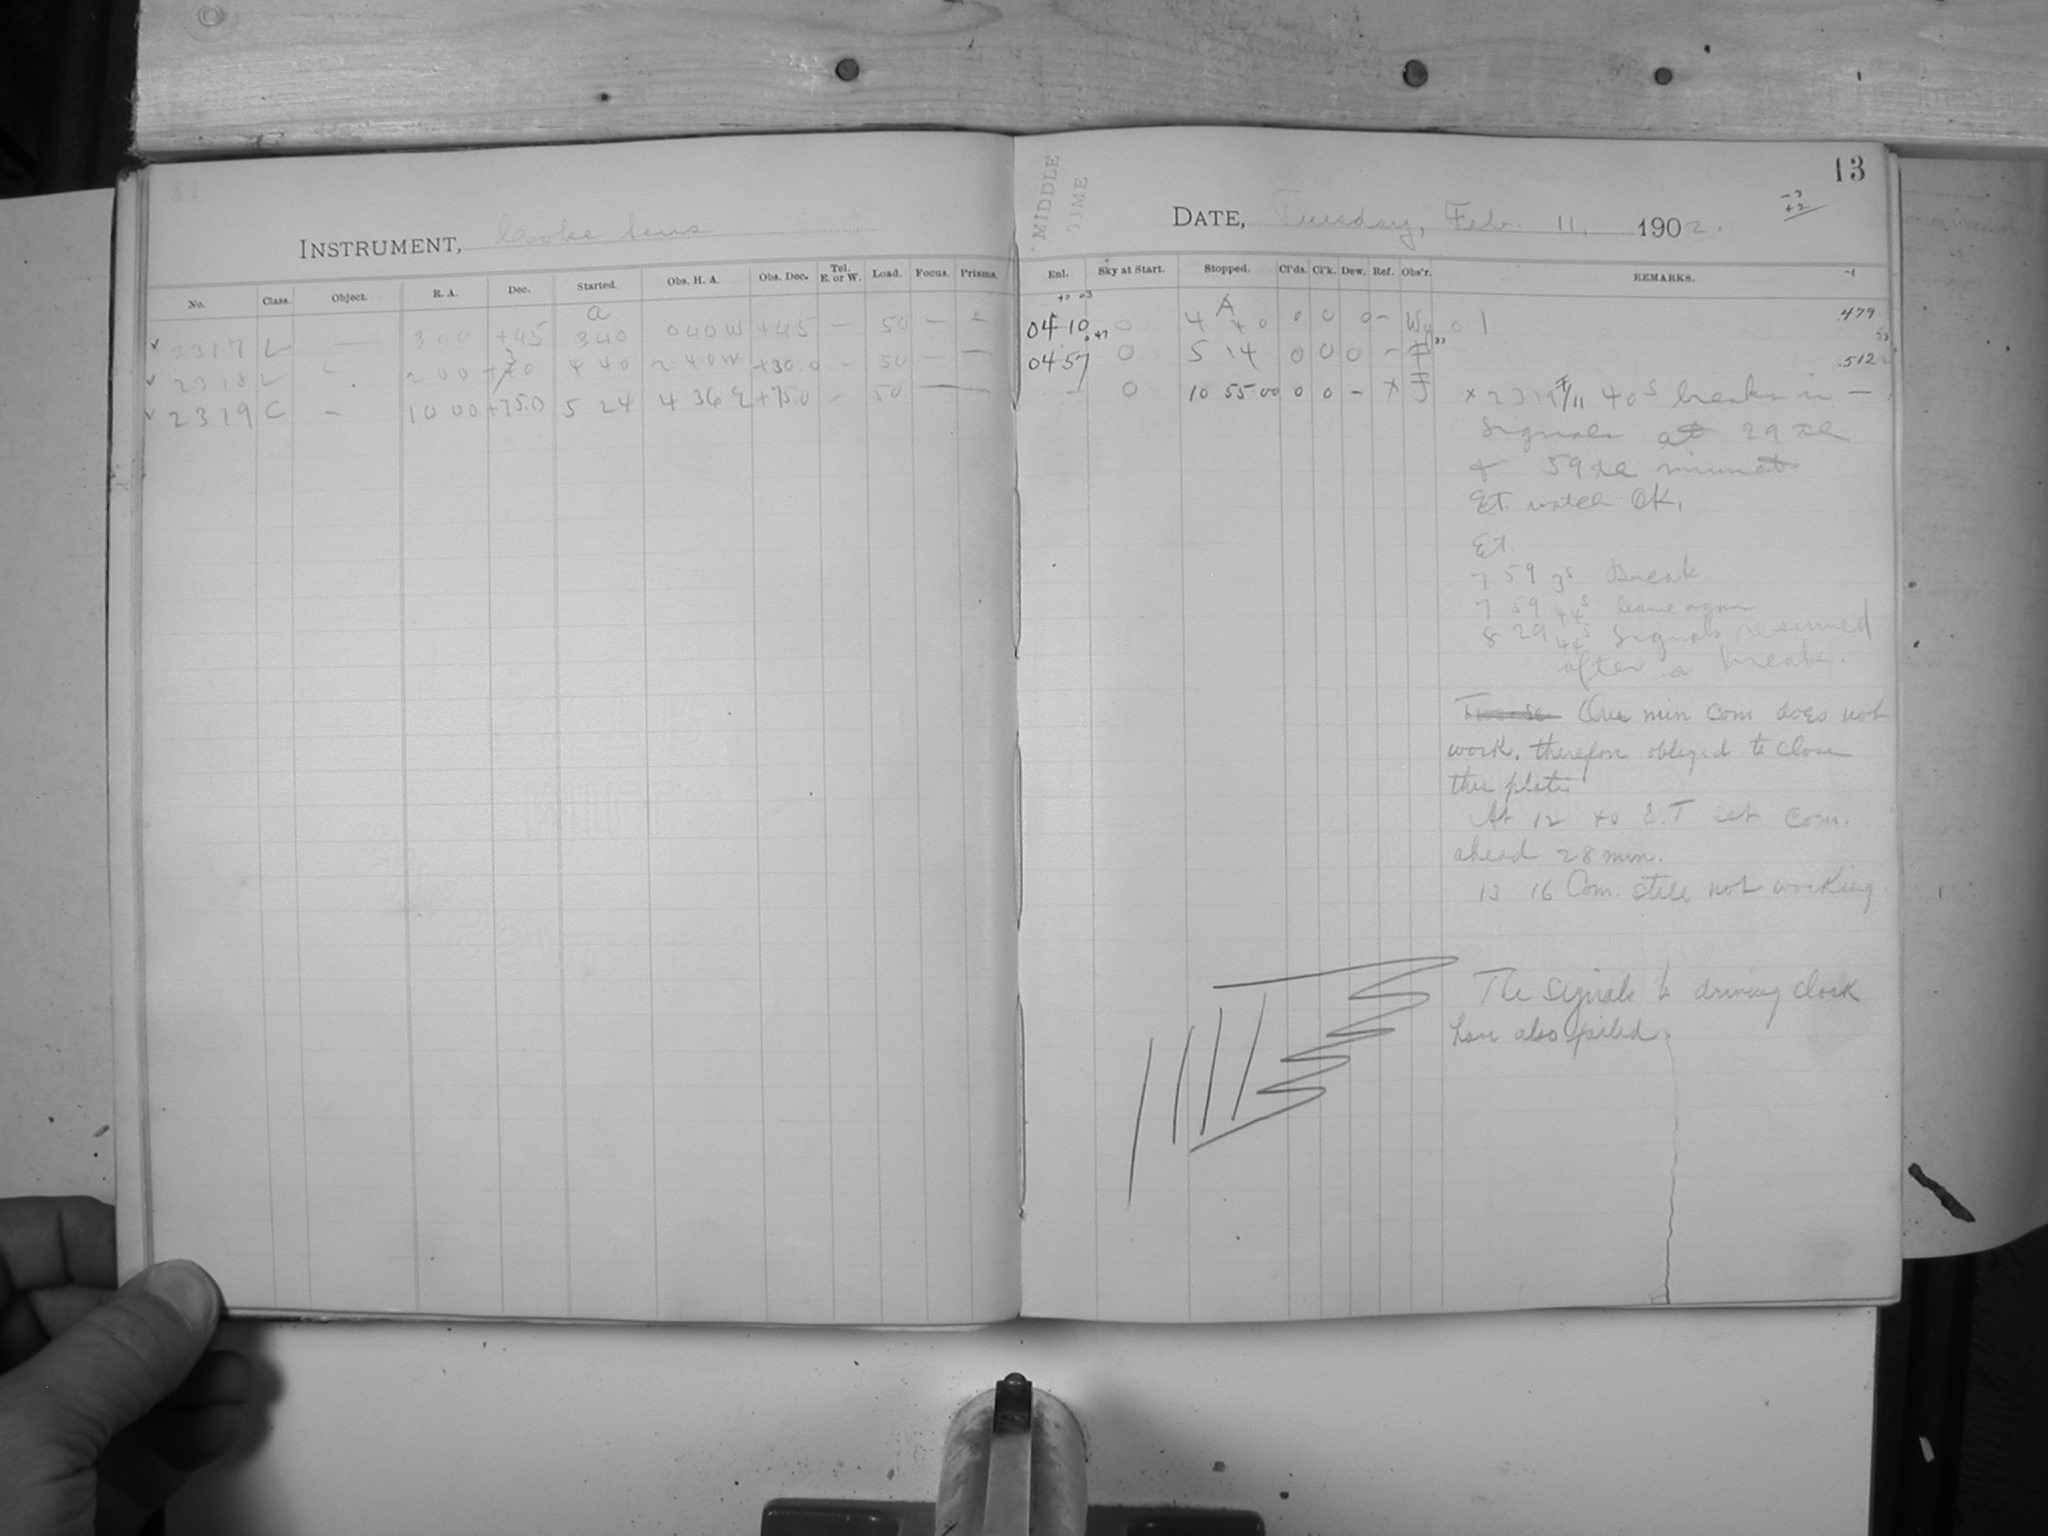 13
MIDDLE
TIME
-3
+2
INSTRUMENT, Cooke lens
DATE, Tuesday, Feb. 11, 1902.
No. Class. Object. R. A. Dec. Started. Obs. H. A. Obs. Dec. Tel. E. or W. Load. Focus. Prisms.
Enl. Sky at Start. Stopped. Cl'ds. Cl'k. Dew. Ref. Obs'r. REMARKS.
a
2317 L — 3 00 +45 3 40 0 40 W +45 — 50 — —
A
04 10 0 4 40 0 0 0 — 0 1 .479
2318 L 2 00 4 40 2 40 W +30.0 — 50 — —
04 57 0 5 14 0 0 0 — .512
2319 C — 10 00 +75.0 5 24 4 36 E +75.0 — 50 — —
— 0 10 55 00 0 0 — x J x 2319 40 s breaks in —
signals at 29 th
+ 59 th minute
ET. watch OK.
Et.
7 59 3s Break
7 59 44s began again
8 29 42s Signals resumed
after a break.
One min com does not
work, therefore obliged to close
this plate
At 12 40 E.T set com.
ahead 28 min.
13 16 Com. still not working
The signals to driving clock
have also failed.